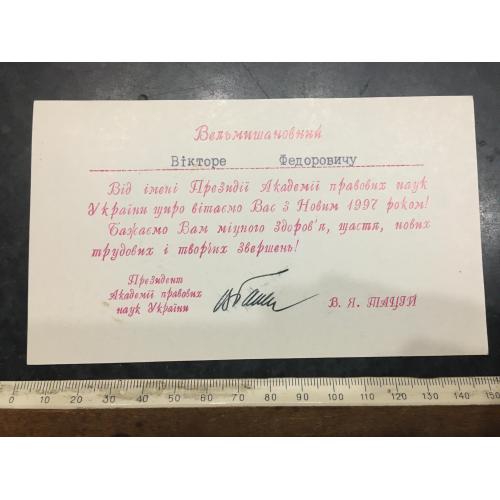 Вельмишановний
Вікторе Федоровичу
Від імені Президії Академії правових наук
України щиро вітаємо Вас з Новим 1997 роком!
Бажаємо Вам міцного здоров'я, щастя, нових
трудових і творчих звершень!
Президент
Академії правових
наук України
В. Я. ТАЦІЙ
0 10 20 30 40 50 60 70 80 90 100 110 120 130 140 150